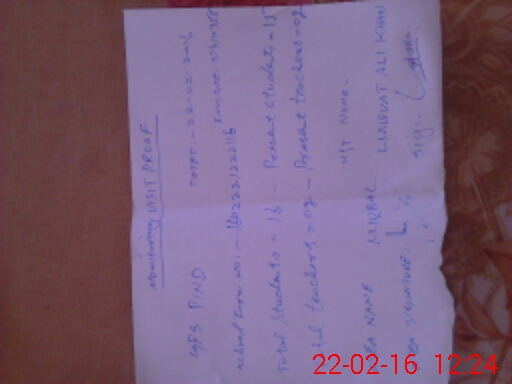 MONITORING VISIT PROOF
GPS PIND
DATE:- 22-02-2016
School Form no:-
Total Students = 16 - Present students = 15
teachers = 02 - Present teachers = 02
H/T NAME-
NAME M. IQBAL LIAQUAT ALI KHAN
SIGNATURE: Sig:-
22-02-16 12:24